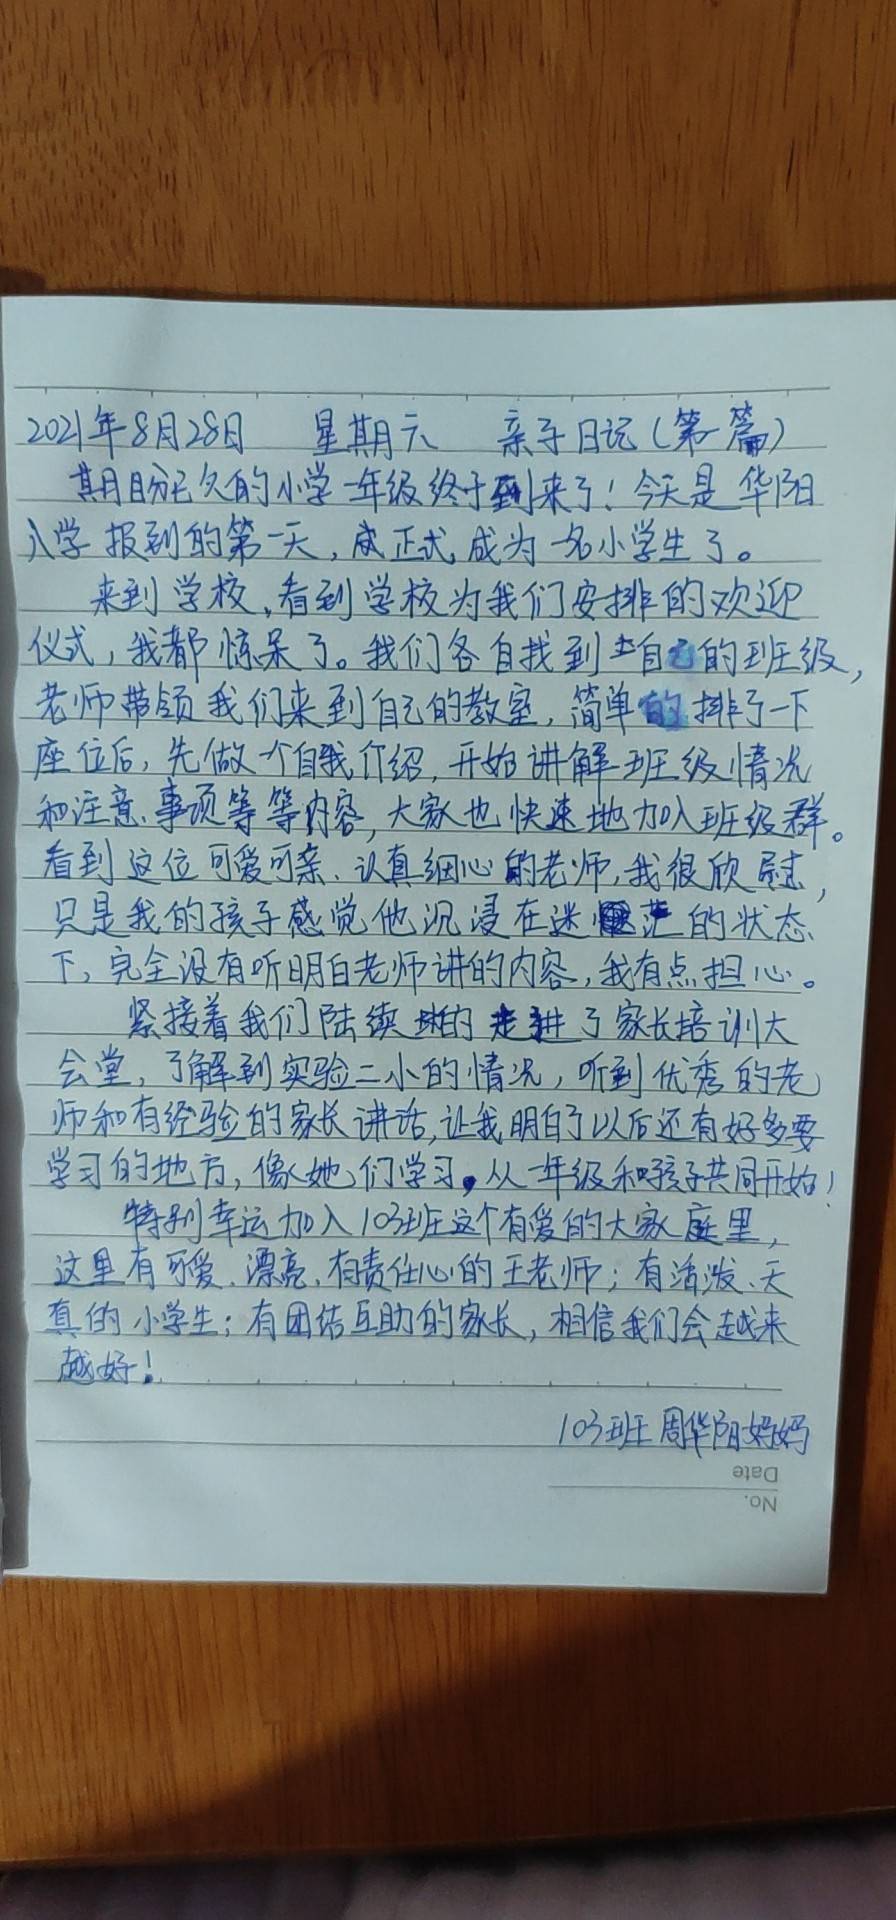 2021年8月28日 星期六 亲子日记(第一篇)
期盼已久的小学一年级终于到来了!今天是华阳
入学报到的第一天,成正式成为一名小学生了。
来到学校,看到学校为我们安排的欢迎
仪式,我都惊呆了。我们各自找到自己的班级,
老师带领我们来到自己的教室,简单的排了一下
座位后,先做个自我介绍,开始讲解班级情况
和注意、事项等等内容,大家也快速地加入班级群。
看到这位可爱可亲、认真细心的老师,我很欣慰,
只是我的孩子感觉他沉浸在迷茫的状态
下,完全没有听明白老师讲的内容,我有点担心。
紧接着我们陆续的走进了家长培训大
会堂,了解到实验二小的情况,听到优秀的老
师和有经验的家长讲话,让我明白了以后还有好多要
学习的地方,像她们学习。从一年级和孩子共同开始!
特别幸运加入103班这个有爱的大家庭里,
这里有可爱、漂亮、有责任心的王老师;有活泼、天
真的小学生;有团结互助的家长,相信我们会越来
越好!
103班周华阳妈妈
Date
No.